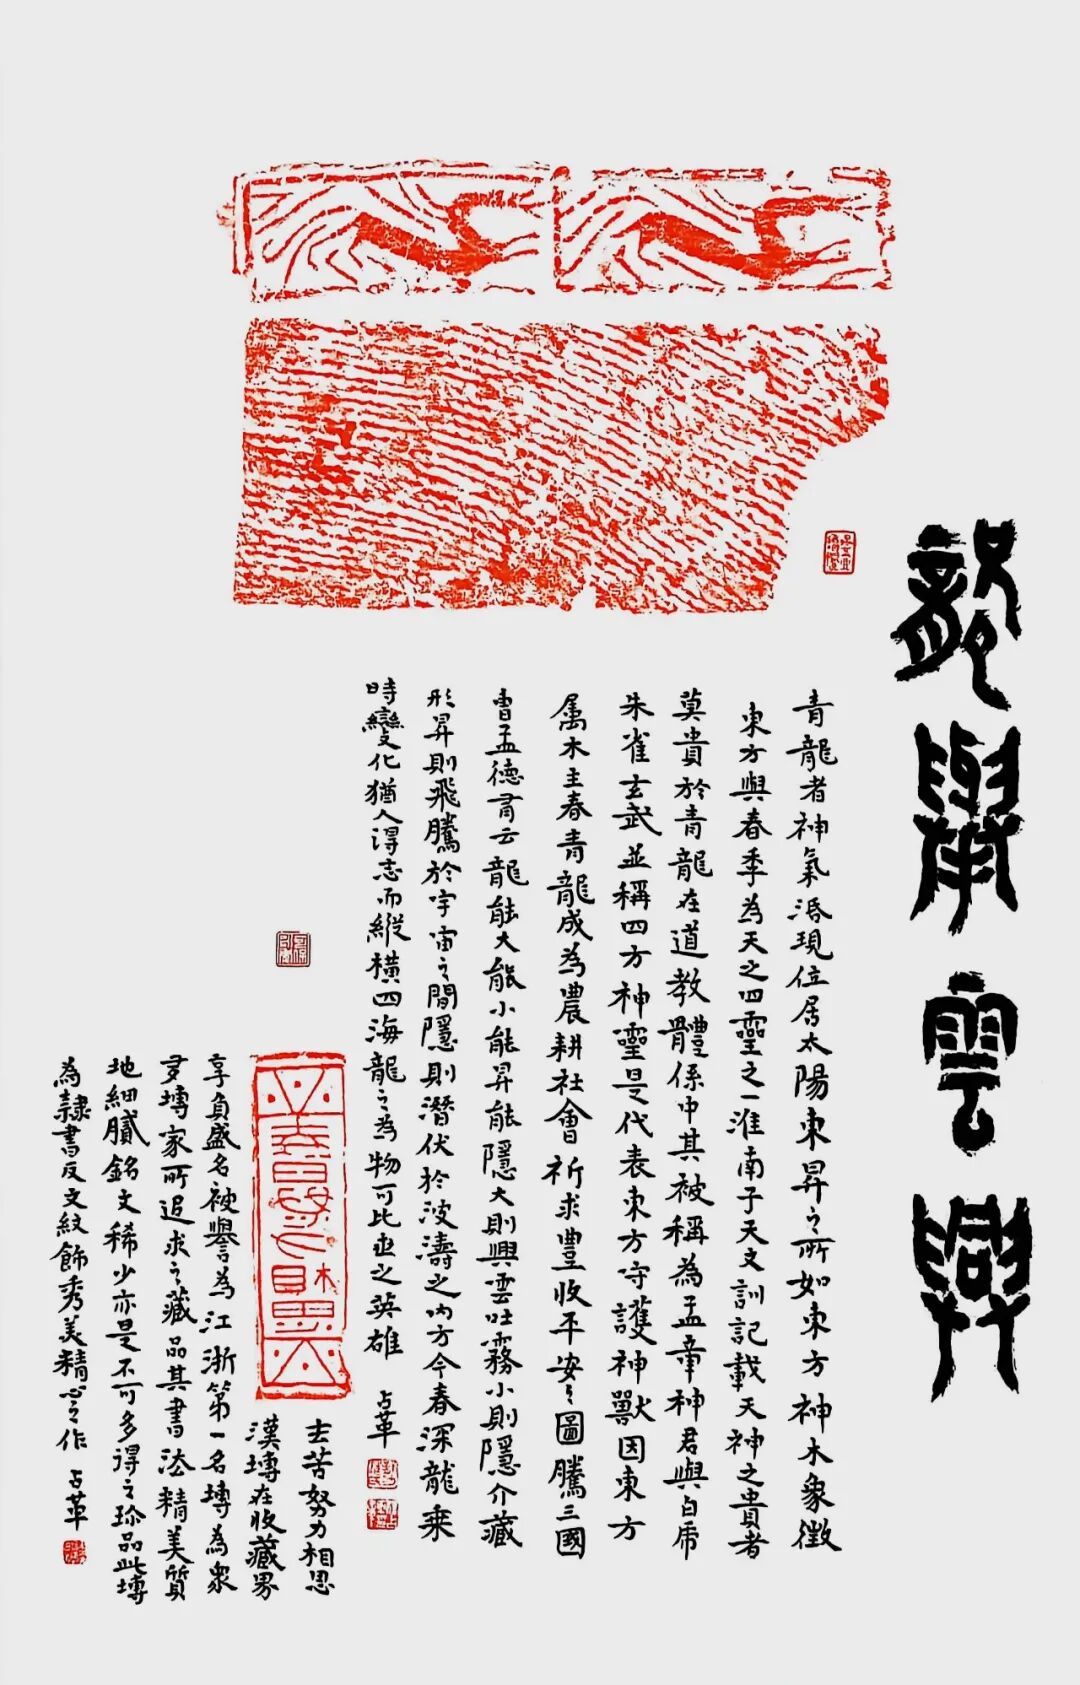 龍舉雲興
青龍者神氣現位居太陽東昇之所如東方神木象徵
東方與春季為天之四靈之一淮南子天文訓記載天神之貴者
莫貴於青龍在道教體係中其被稱為孟章神君與白虎
朱雀玄武並稱四方神靈是代表東方守護神獸因東方
属木主春青龍成為農耕社會祈求豐收平安之圖騰三國
曹孟德云龍能大能小能昇能隱大則興雲吐霧小則隱介藏
形昇則飛騰於宇宙之間隱則潛伏於波濤之內方今春深龍乘
時變化猶人得志而縱橫四海龍之為物可比世之英雄 占革
苦努力相思
漢塼在收藏界
享負盛名被譽為江浙第一名塼為眾
多塼家所追求之藏品其書法精美質
地細膩銘文稀少亦是不可多得之珍品此塼
為隸書反文紋飾秀美精心之作 占革